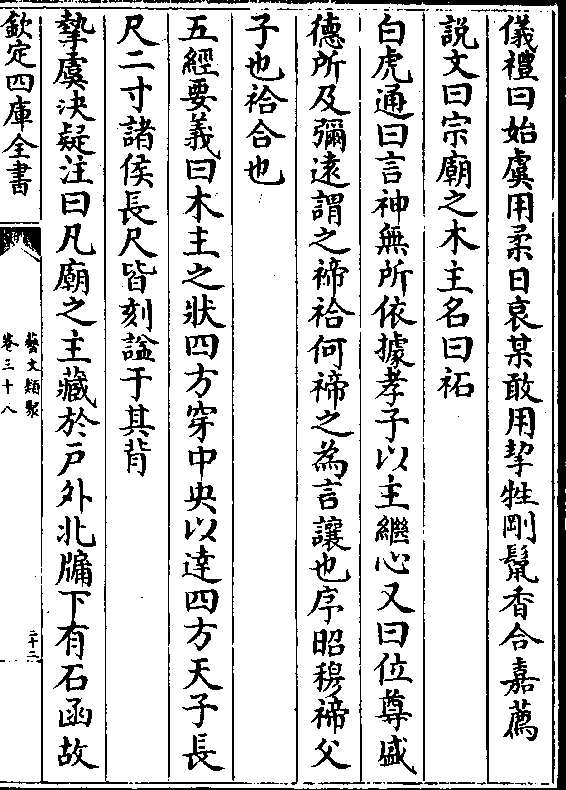 儀禮曰始虞用柔日哀某敢用挈牲剛鬛香合嘉薦
説文曰宗廟之木主名曰祏
白虎通曰言神無所依據孝子以主繼心又曰位尊盛
德所及彌逺謂之禘祫何禘之為言諦也序昭穆禘父
子也祫合也
五經要義曰木主之狀四方穿中央以達四方天子長
尺二寸諸侯長尺皆刻諡于其背
摯虞决疑注曰凡廟之主藏於戶外北牖下有石函故
欽定四庫全書
藝文類聚
卷三十八
二十二